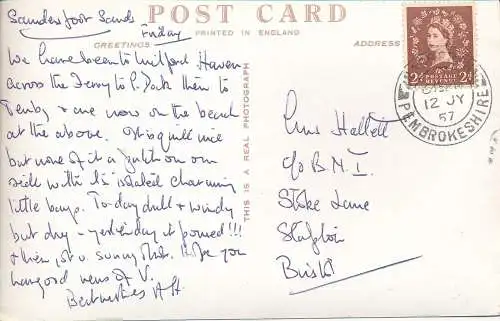 Saundersfoot Sands
Friday
POST CARD
PRINTED IN ENGLAND
GREETINGS
ADDRESS
We have been to Milford Haven
across the Ferry to P. Dock then to
Tenby & are now on the beach
at the above. This quite nice
but none of it a patch on our
side with its isolated charming
little bays. To-day dull & windy
but dry - yesterday it poured!!!
& then, 1st v. sunny. Hope you
have good news of V.
Best wishes A H.
THIS IS A REAL PHOTOGRAPH
Miss Hallett
c/o B.M.I.
Stoke Lane
Stapleton
Bristol
POSTAGE REVENUE
2d 2d
12 JY
57
PEMBROKESHIRE